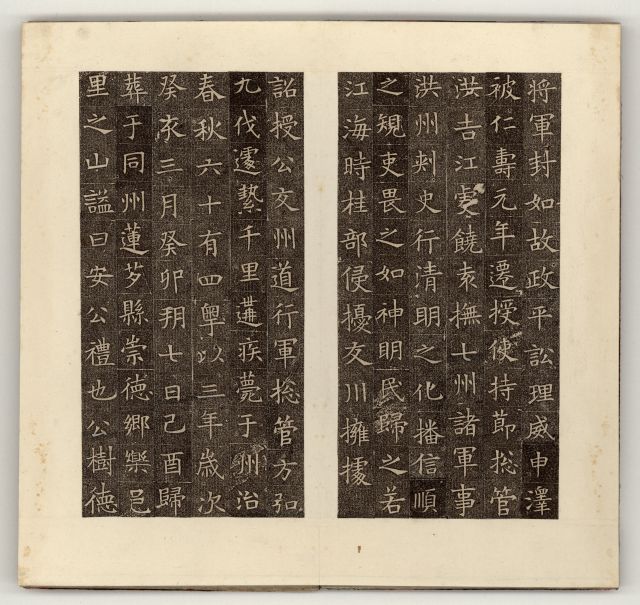 将軍封如故政平訟理威申澤
被仁壽元年遷授使持節揔管
洪吉江虔饒袁撫七州諸軍事
洪州刾史行清明之化播信順
之規吏畏之如神明民歸之若
江海時桂部侵擾交川擁據
詔授公交州道行軍揔管方弘
九伐遽縶千里遘疾薨于州治
春秋六十有四粤以三年歲次
癸亥三月癸卯朔七日己酉歸
葬于同州蓮芍縣崇德鄉樂邑
里之山謚曰安公禮也公樹德